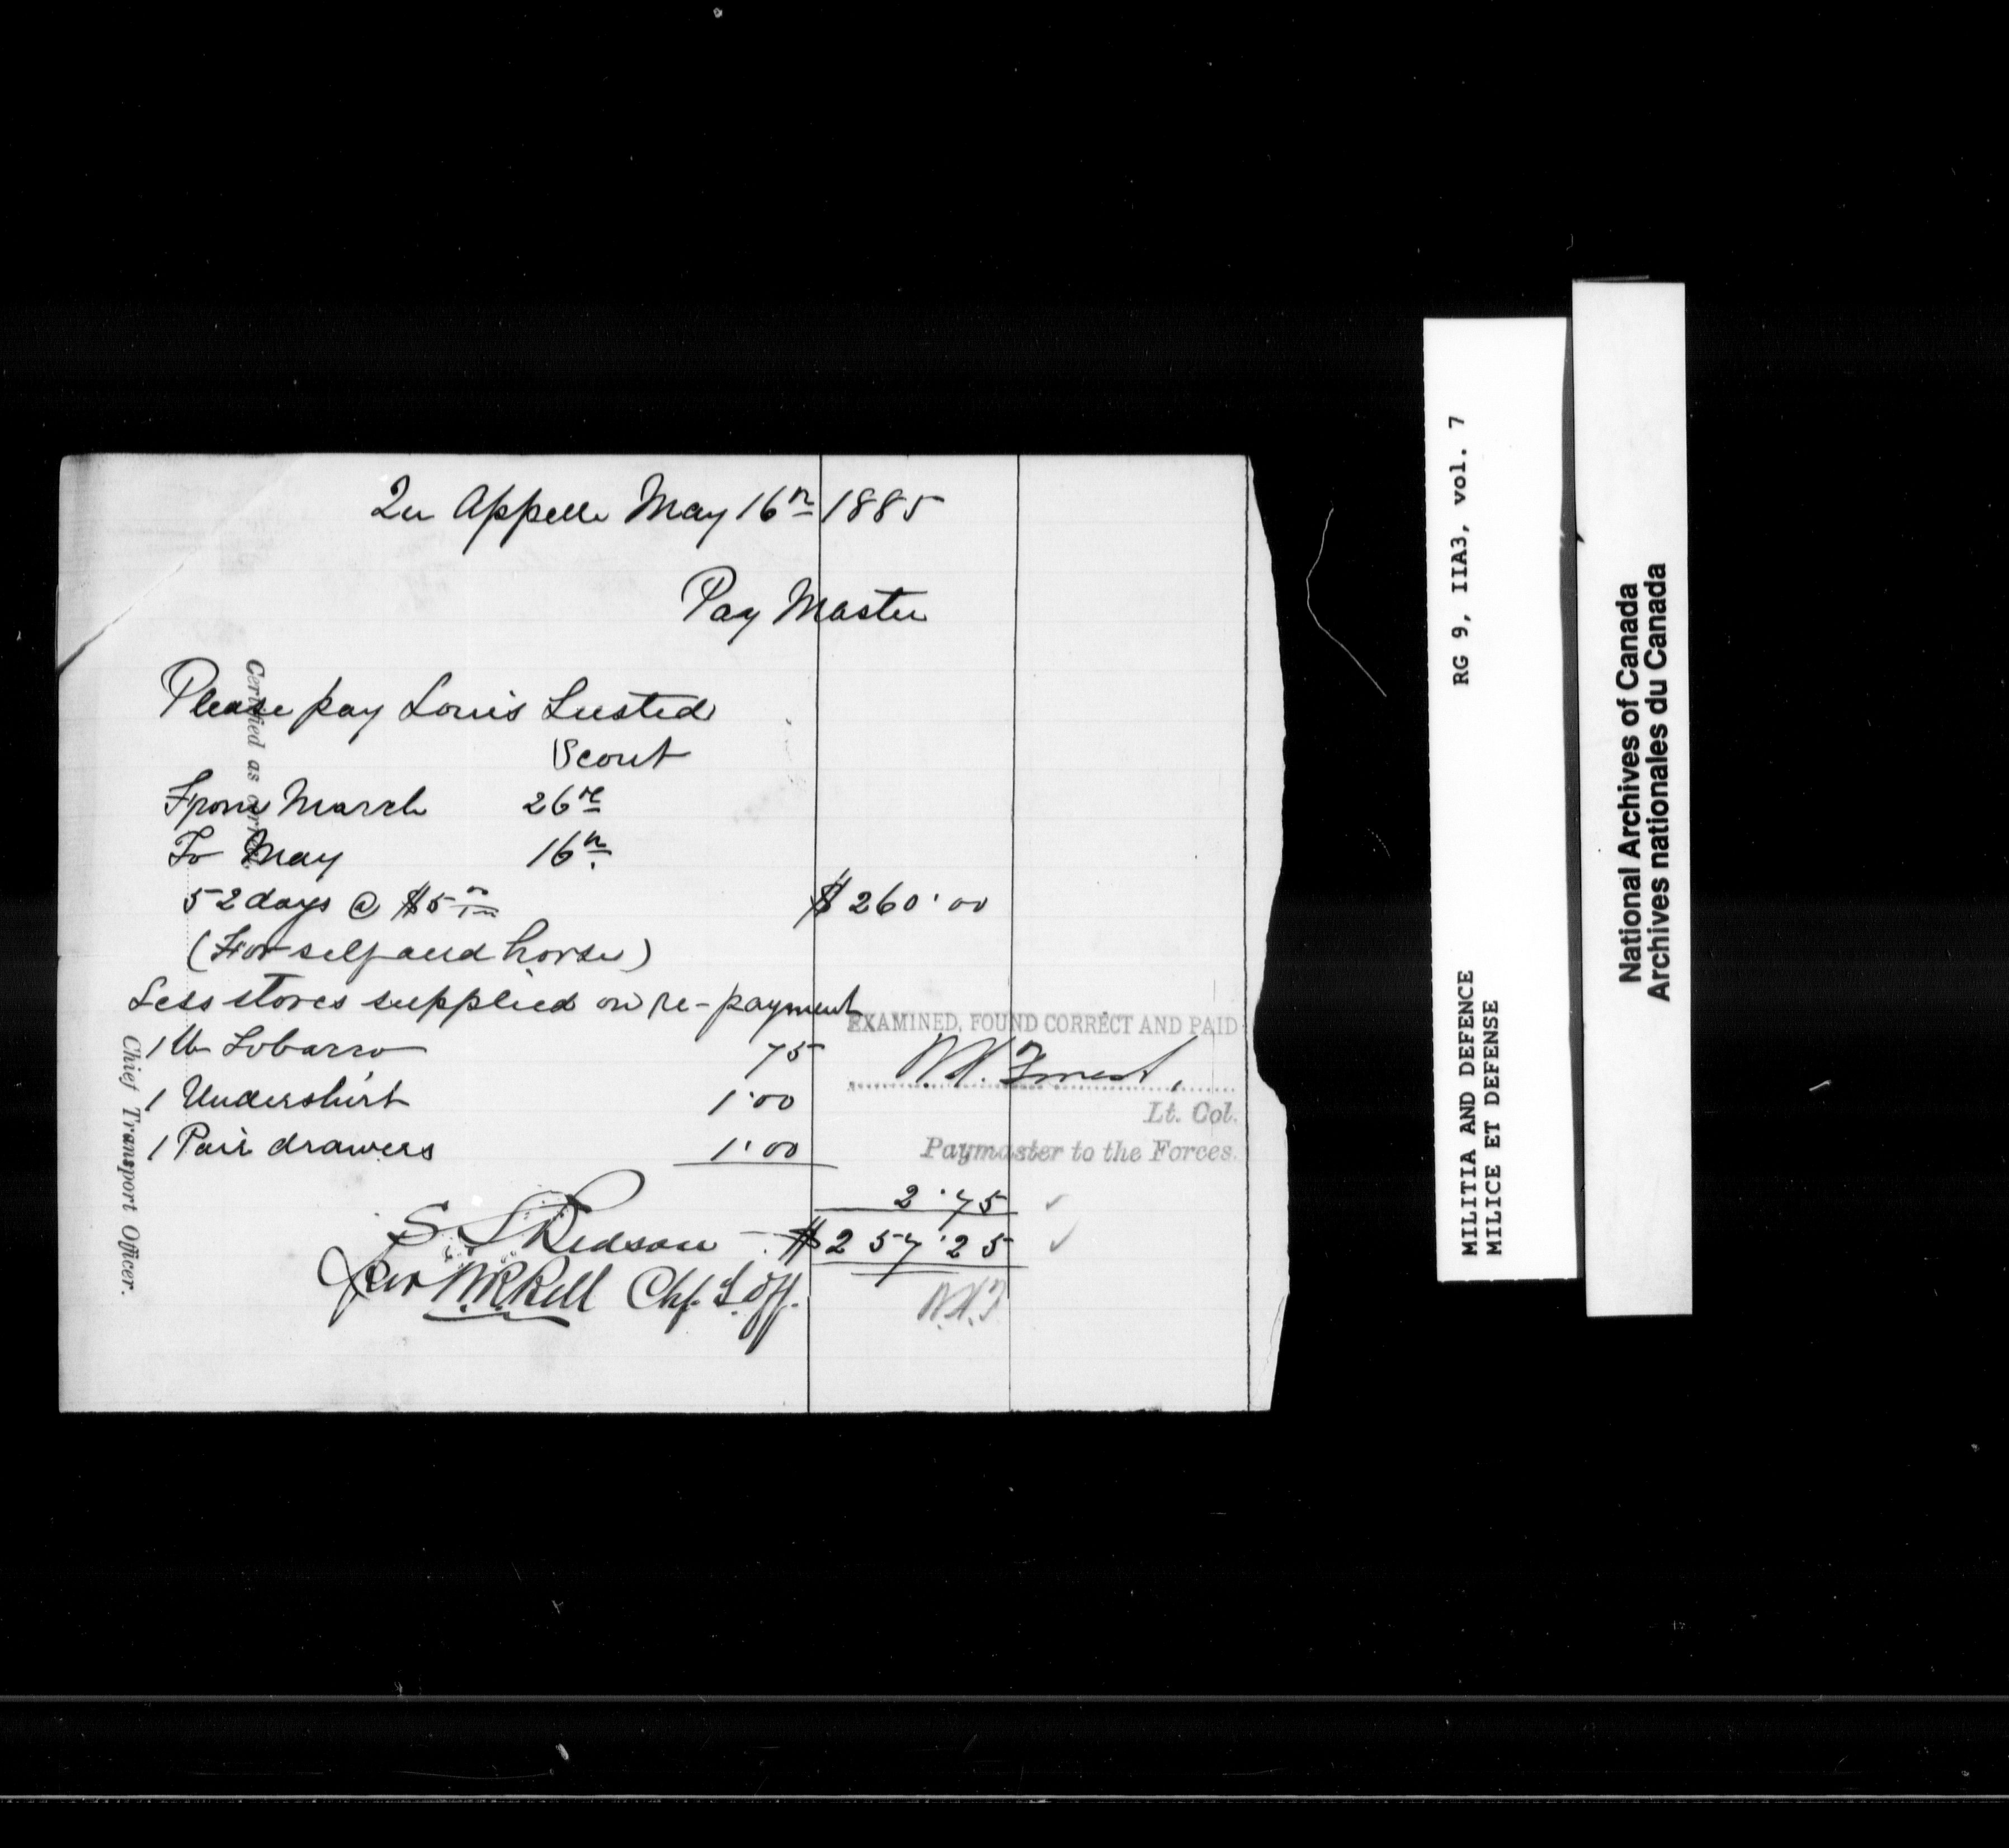 Qu Appelle May 16th 1885
Pay Master
Please pay Louis Lusted
Scout
From March 26th
To May 16th
52 days @ $5 00 $260.00
(For self and horse)
Less stores supplied on re-payment
1 lb Tobacco 75
1 Undershirt 1.00
1 Pair drawers 1.00
2.75
S L Bedson - $257.25
per W.R. Bell Chf. T. Off.
W.H.F.
Certified as correct.
Chief Transport Officer.
EXAMINED, FOUND CORRECT AND PAID
W.H. Forrest,
Lt. Col.
Paymaster to the Forces.
MILITIA AND DEFENCE RG 9, IIA3, vol. 7
MILICE ET DEFENSE
National Archives of Canada
Archives nationales du Canada